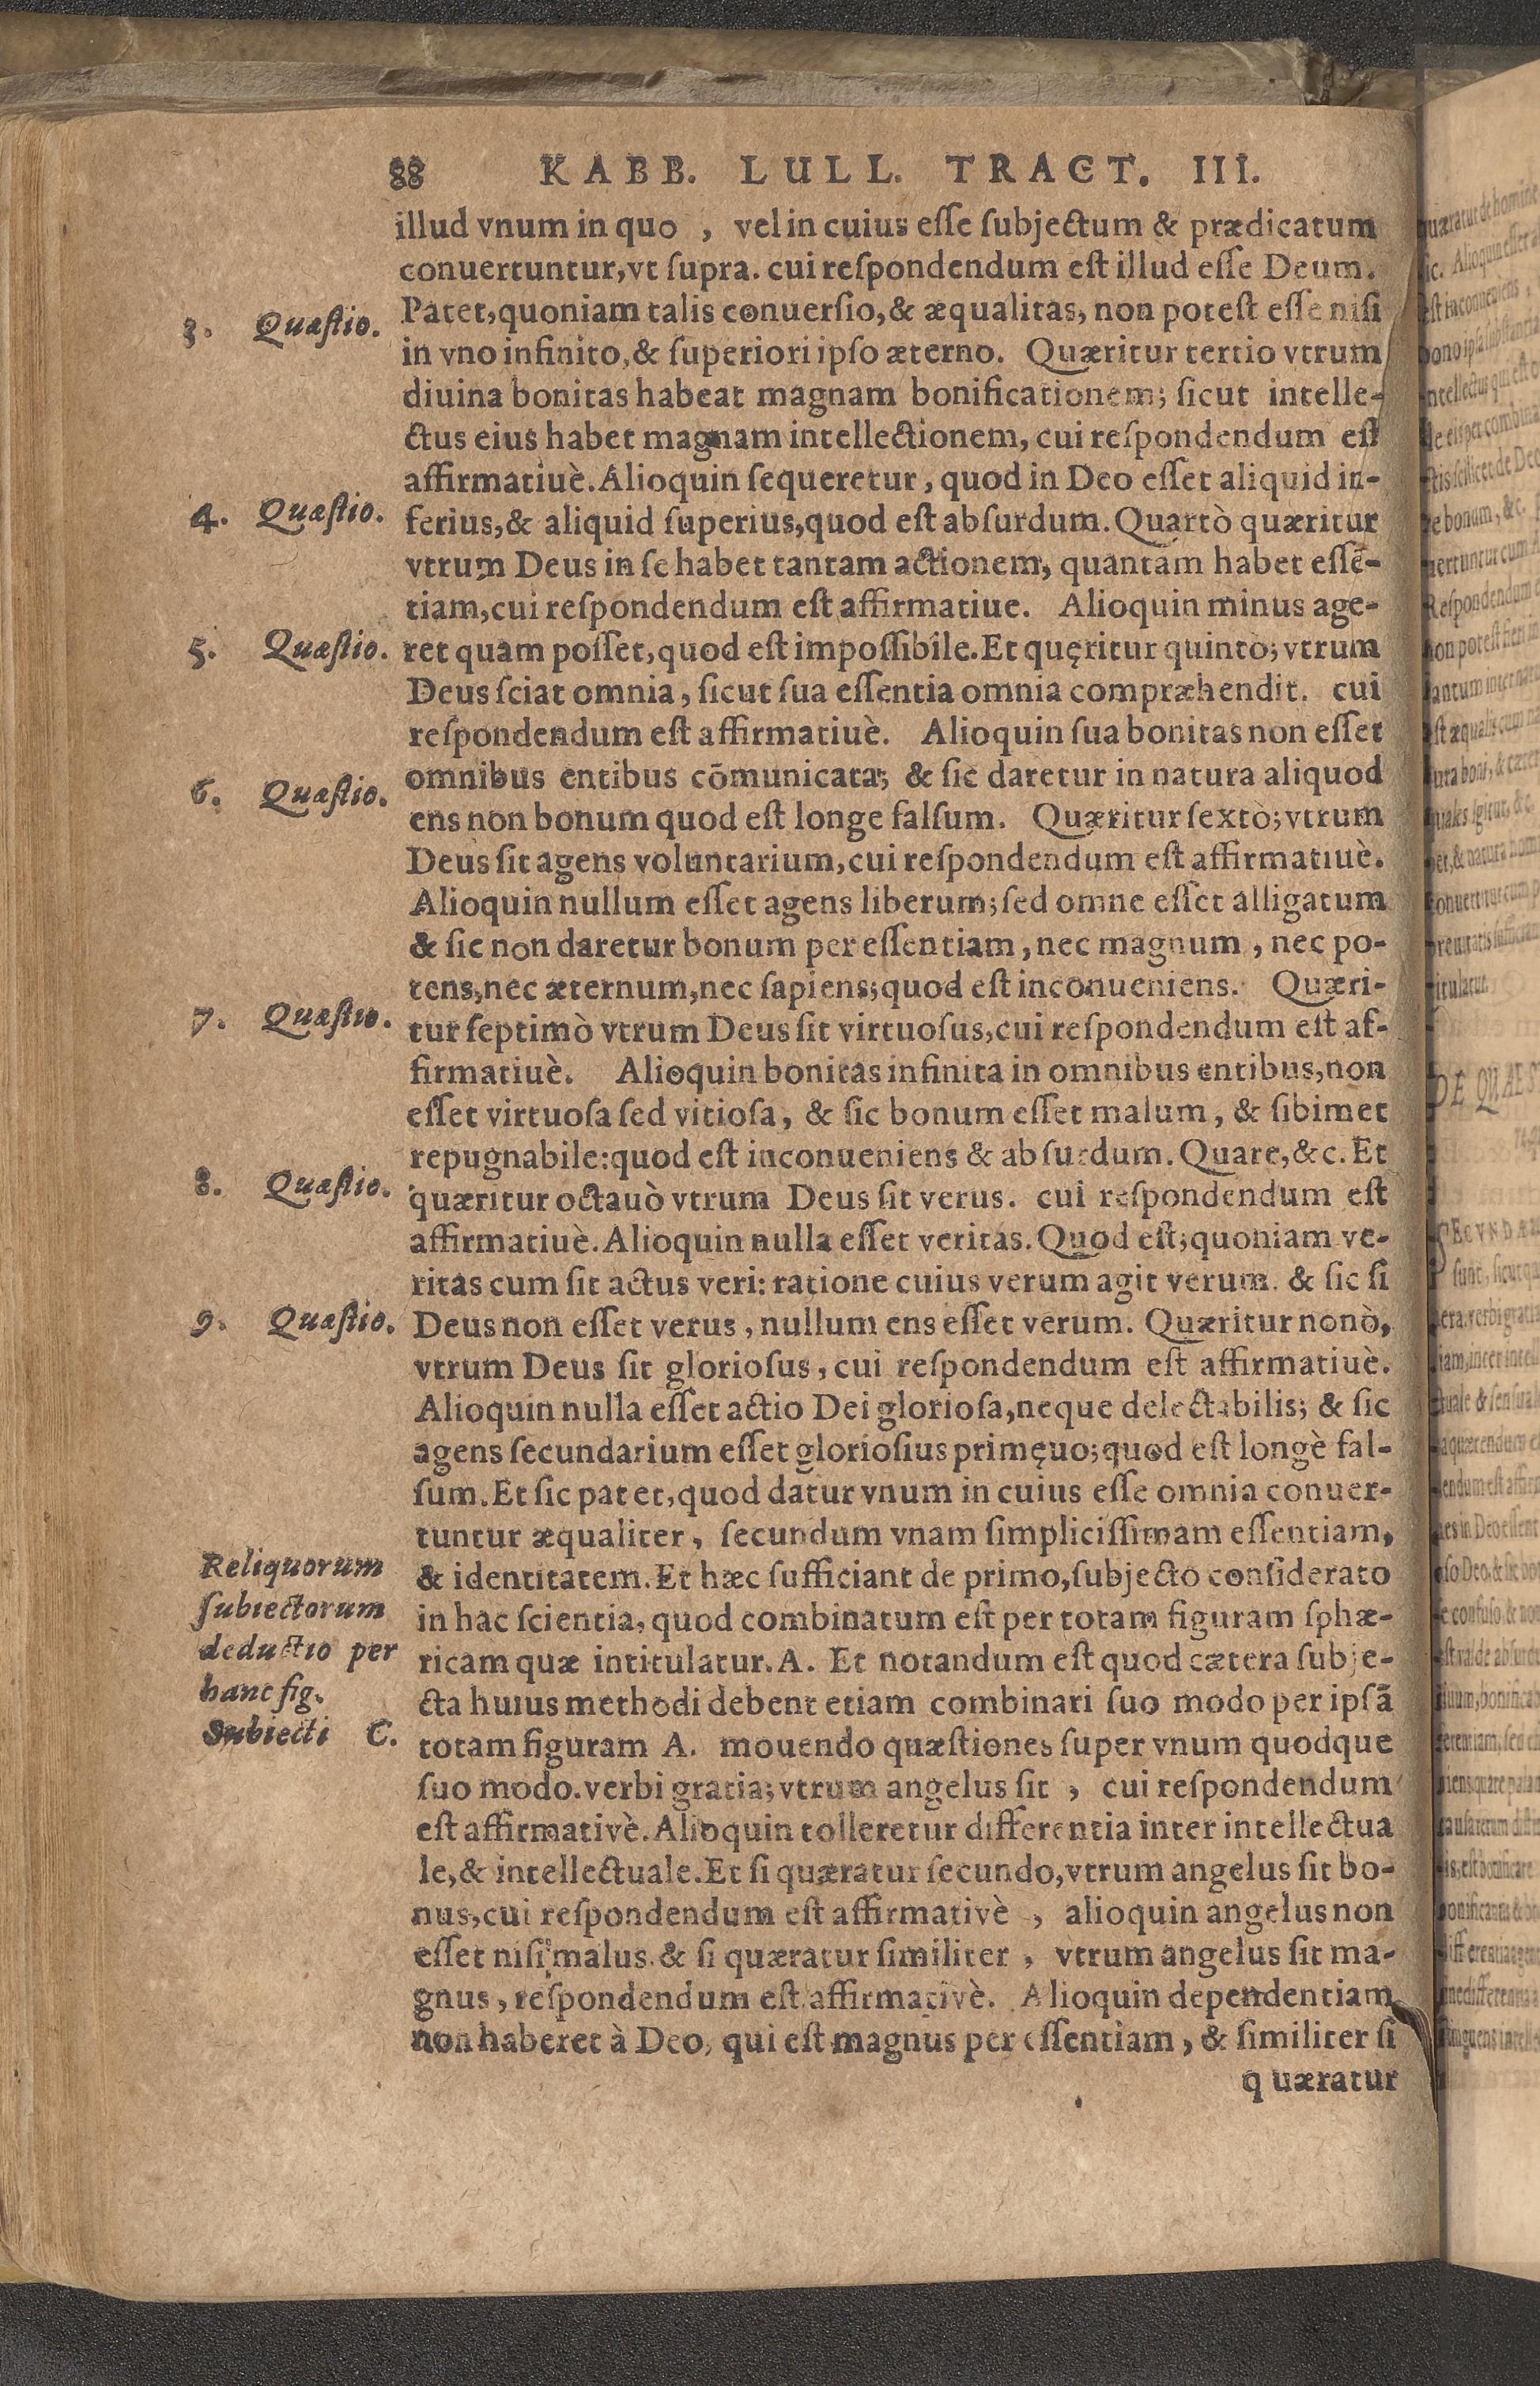 88 KABB. LULL. TRACT. III.
illud vnum in quo , vel in cuius eſſe ſubjectum & prædicatum
conuertuntur, vt ſupra. cui reſpondendum eſt illud eſſe Deum.
3. Quæſtio.
Patet, quoniam talis conuerſio, & æqualitas, non poteſt eſſe niſi
in vno infinito, & ſuperiori ipſo æterno. Quæritur tertio vtrum
diuina bonitas habeat magnam bonificationem; ſicut intelle-
ctus eius habet magnam intellectionem, cui reſpondendum eſt
affirmatiuè. Alioquin ſequeretur, quod in Deo eſſet aliquid in-
4. Quæſtio.
ferius, & aliquid ſuperius, quod eſt abſurdum. Quartò quæritur
vtrum Deus in ſe habet tantam actionem, quantam habet eſſē-
tiam, cui reſpondendum eſt affirmatiue. Alioquin minus age-
5. Quæſtio.
ret quam poſſet, quod eſt impoſſibile. Et quęritur quintò; vtrum
Deus ſciat omnia, ſicut ſua eſſentia omnia compræhendit. cui
reſpondendum eſt affirmatiuè. Alioquin ſua bonitas non eſſet
6. Quæſtio.
omnibus entibus cōmunicata; & ſic daretur in natura aliquod
ens non bonum quod eſt longe falſum. Quæritur ſextò; vtrum
Deus ſit agens voluntarium, cui reſpondendum eſt affirmatiuè.
Alioquin nullum eſſet agens liberum; ſed omne eſſet alligatum
& ſic non daretur bonum per eſſentiam, nec magnum, nec po-
tens, nec æternum, nec ſapiens; quod eſt inconueniens. Quæri-
7. Quæſtio.
tur ſeptimò vtrum Deus ſit virtuoſus, cui reſpondendum eſt af-
firmatiuè. Alioquin bonitas infinita in omnibus entibus, non
eſſet virtuoſa ſed vitioſa, & ſic bonum eſſet malum, & ſibimet
repugnabile: quod eſt inconueniens & abſurdum. Quare, &c. Et
8. Quæſtio.
quæritur octauò vtrum Deus ſit verus. cui reſpondendum eſt
affirmatiuè. Alioquin nulla eſſet veritas. Quod eſt; quoniam ve-
ritas cum ſit actus veri: ratione cuius verum agit verum. & ſic ſi
9. Quæſtio.
Deus non eſſet verus, nullum ens eſſet verum. Quæritur nonò,
vtrum Deus ſit glorioſus, cui reſpondendum eſt affirmatiuè.
Alioquin nulla eſſet actio Dei glorioſa, neque delectabilis; & ſic
agens ſecundarium eſſet glorioſius primęuo; quod eſt longè fal-
ſum. Et ſic patet, quod datur vnum in cuius eſſe omnia conuer-
tuntur æqualiter, ſecundum vnam ſimpliciſſimam eſſentiam,
Reliquorum
ſubiectorum
deductio per
hanc fig.
Subiecti C.
& identitatem. Et hæc ſufficiant de primo, ſubjecto conſiderato
in hac ſcientia, quod combinatum eſt per totam figuram ſphæ-
ricam quæ intitulatur. A. Et notandum eſt quod cætera ſubje-
cta huius methodi debent etiam combinari ſuo modo per ipſā
totam figuram A. mouendo quæſtiones ſuper vnum quodque
ſuo modo. verbi gratia; vtrum angelus ſit , cui reſpondendum
eſt affirmativè. Alioquin tolleretur differentia inter intellectua
le, & intellectuale. Et ſi quæratur ſecundo, vtrum angelus ſit bo-
nus, cui reſpondendum eſt affirmativè , alioquin angelus non
eſſet niſi malus. & ſi quæratur ſimiliter , vtrum angelus ſit ma-
gnus, reſpondendum eſt affirmativè. Alioquin dependentiam
non haberet à Deo, qui eſt magnus per eſſentiam, & ſimiliter ſi
quæratur